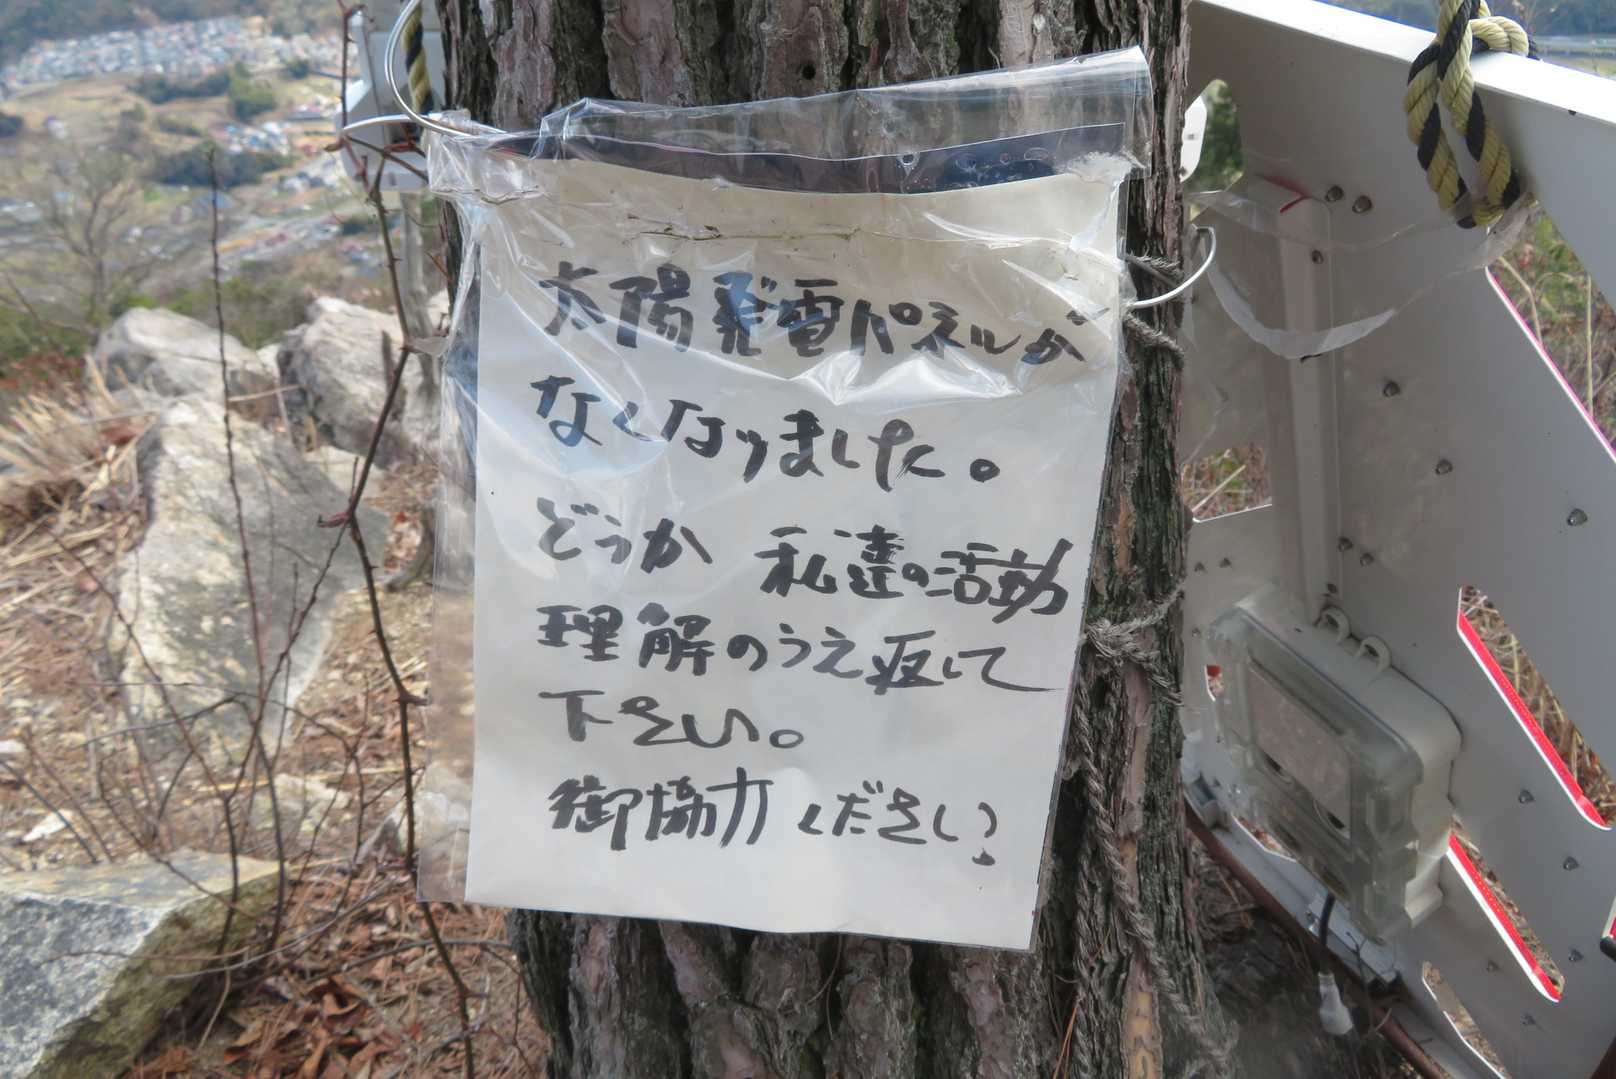 太陽発電パネルが
なくなりました。
どうか 私達の活動
理解のうえ返して
下さい。
御協力ください